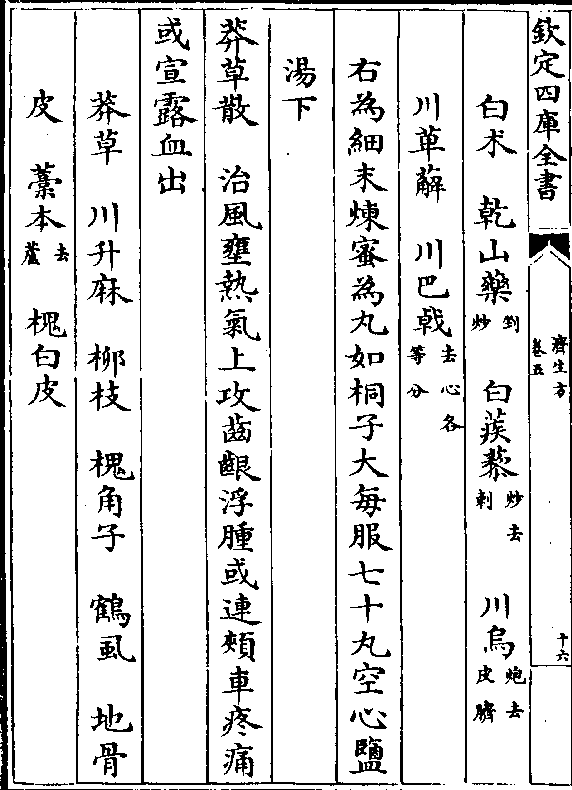 欽定四庫全書
濟生方
卷五
十六
白朮　乾山藥剉炒　白蒺藜炒去刺　川烏炮去皮臍
川萆薢　川巴戟去心各等分
右為細末煉蜜為丸如桐子大每服七十丸空心鹽
湯下
莽草散　治風壅熱氣上攻齒齦浮腫或連頰車疼痛
或宣露血出
莽草　川升麻　柳枝　槐角子　鶴虱　地骨
皮　藁本去蘆　槐白皮